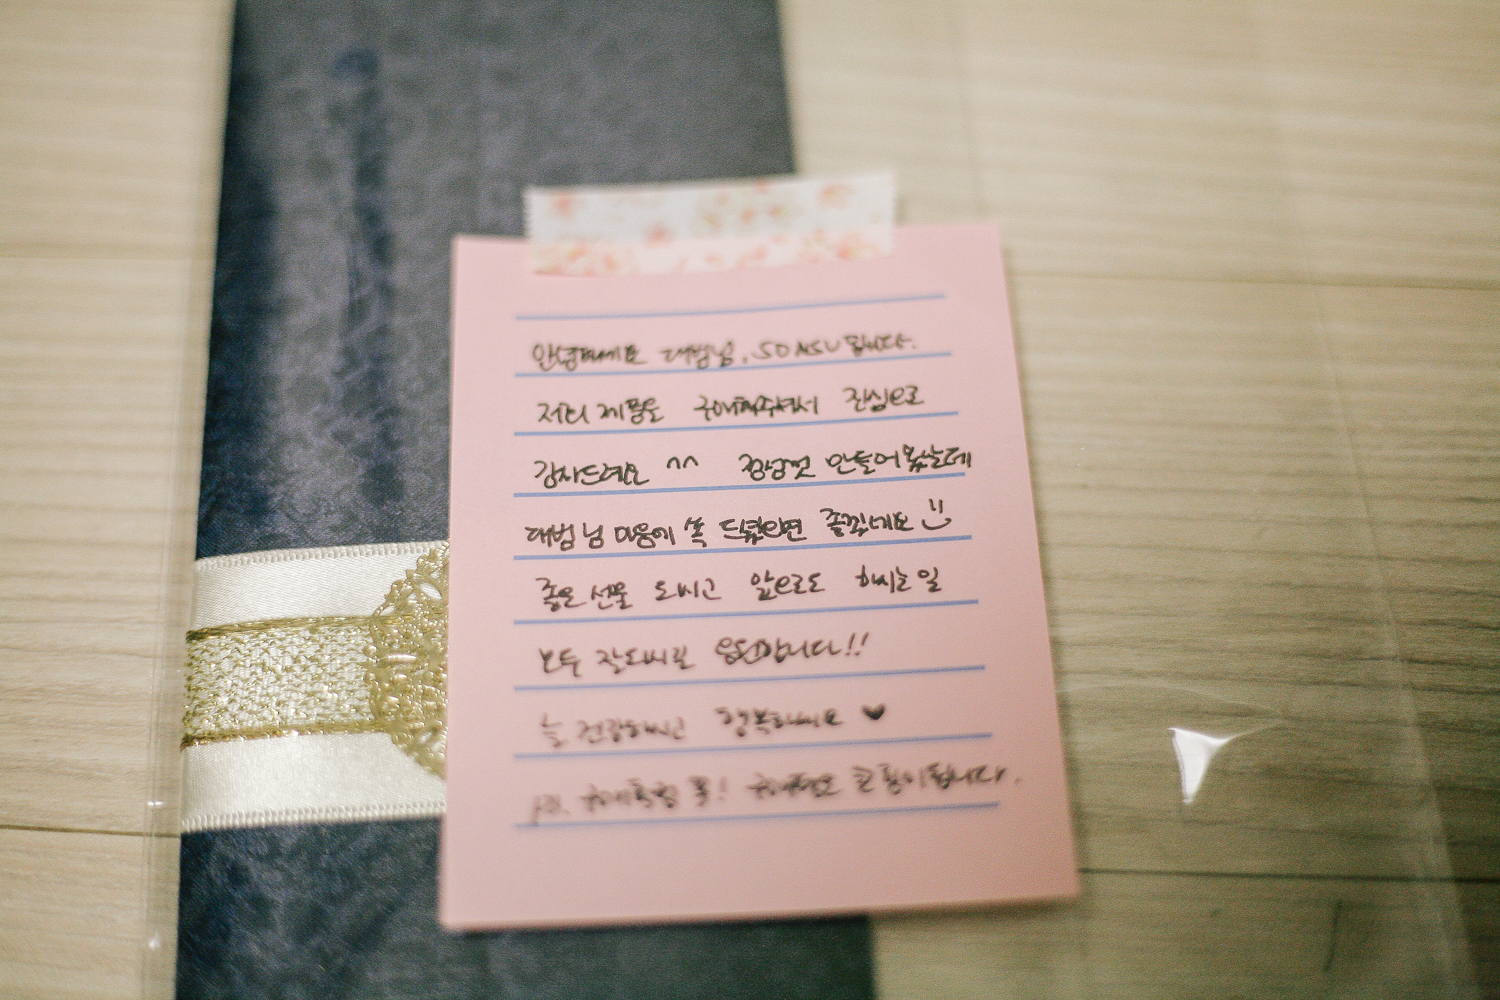 안녕하세요 대범님, SOASU 입니다.
저희 제품을 구매해주셔서 진심으로
감사드려요 ^^ 정성껏 만들어 보았는데
대범님 마음에 쏙 드셨으면 좋겠네요 :)
좋은 선물 되시고 앞으로도 하시는 일
모두 잘되시길 응원합니다!!
늘 건강하시고 행복하세요 ♥
ps. 구매특정 꼭! 구매평은 큰 힘이됩니다.